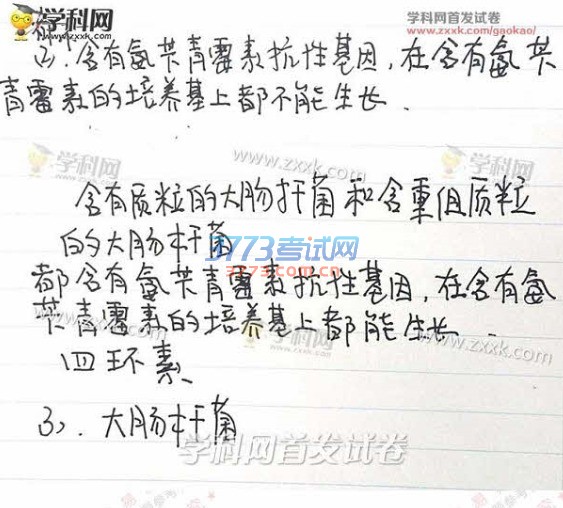 学科网 学科网首发试卷
www.zxxk.com/gaokao/
(2). 含有氨苄青霉素抗性基因, 在含有氨苄
青霉素的培养基上都不能生长.
学科网 www.zxxk.com
含有质粒的大肠杆菌和含重组质粒
的大肠杆菌
3773考试网
3773.com.cn
都含有氨苄青霉素抗性基因, 在含有氨
苄青霉素的培养基上都能生长.
学科网 www.zxxk.com
四环素
(3). 大肠杆菌
学科网首发试卷